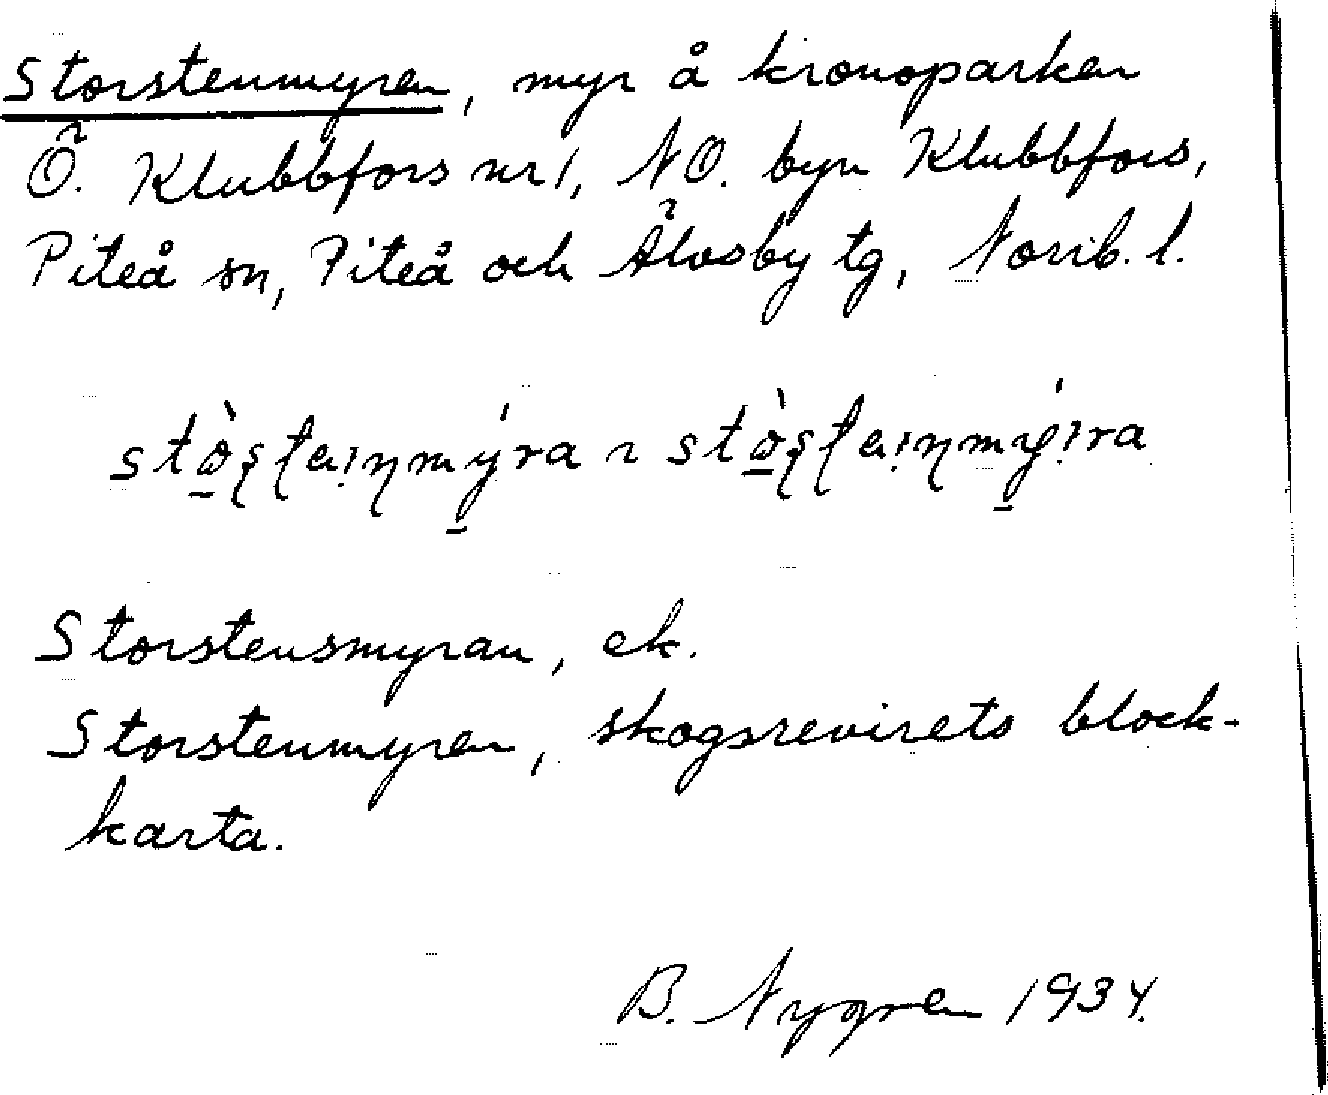 Storstenmyren, myr å kronoparken
Ö. Klubbfors nr 1, NO. byn Klubbfors,
Piteå sn, Piteå och Älvsby tg, Norrb. l.
Storstensmyran, ek.
Storstenmyren, skogsrevirets block-
karta.
B. Nygren 1934.